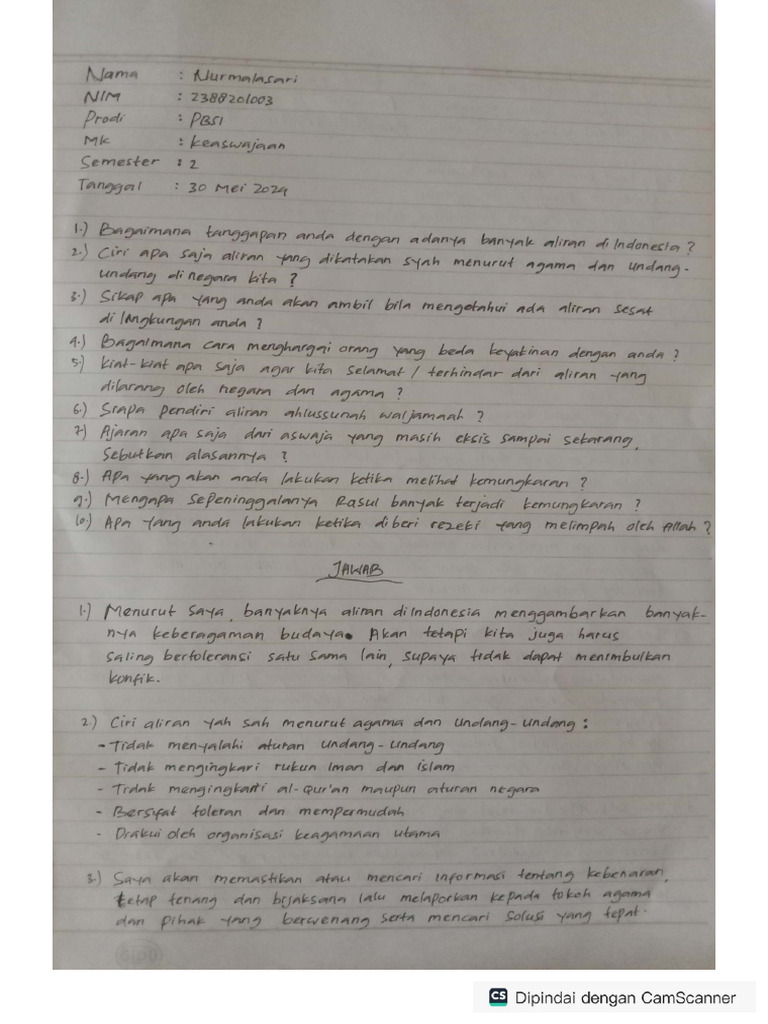 Nama : Nurmalasari
NIM : 2388201003
Prodi : PBSI
Mk : Keaswajaan
Semester : 2
Tanggal : 30 Mei 2024
1.) Bagaimana tanggapan anda dengan adanya banyak aliran di Indonesia ?
2.) Ciri apa saja aliran yang dikatakan syah menurut agama dan undang-
undang di negara kita ?
3.) Sikap apa yang anda akan ambil bila mengetahui ada aliran sesat
di lingkungan anda ?
4.) Bagaimana cara menghargai orang yang beda keyakinan dengan anda ?
5.) Kiat-kiat apa saja agar kita selamat / terhindar dari aliran yang
dilarang oleh negara dan agama ?
6.) Siapa pendiri aliran ahlussunah waljamaah ?
7.) Ajaran apa saja dari aswaja yang masih eksis sampai sekarang,
sebutkan alasannya ?
8.) Apa yang akan anda lakukan ketika melihat kemungkaran ?
9.) Mengapa sepeninggalanya Rasul banyak terjadi kemungkaran ?
10.) Apa yang anda lakukan ketika diberi rezeki yang melimpah oleh Allah ?
JAWAB
1.) Menurut saya, banyaknya aliran di Indonesia menggambarkan banyak-
nya keberagaman budaya. Akan tetapi kita juga harus
saling bertoleransi satu sama lain, supaya tidak dapat menimbulkan
konfik.
2.) Ciri aliran yah sah menurut agama dan Undang-undang :
- Tidak menyalahi aturan undang-undang
- Tidak mengingkari rukun Iman dan islam
- Tidak mengingkari al-Qur'an maupun aturan negara
- Bersifat toleran dan mempermudah
- Diakui oleh organisasi keagamaan utama
3.) Saya akan memastikan atau mencari informasi tentang kebenaran,
tetap tenang dan bijaksana lalu melaporkan kepada tokoh agama
dan pihak yang berwenang serta mencari solusi yang tepat.
CS Dipindai dengan CamScanner